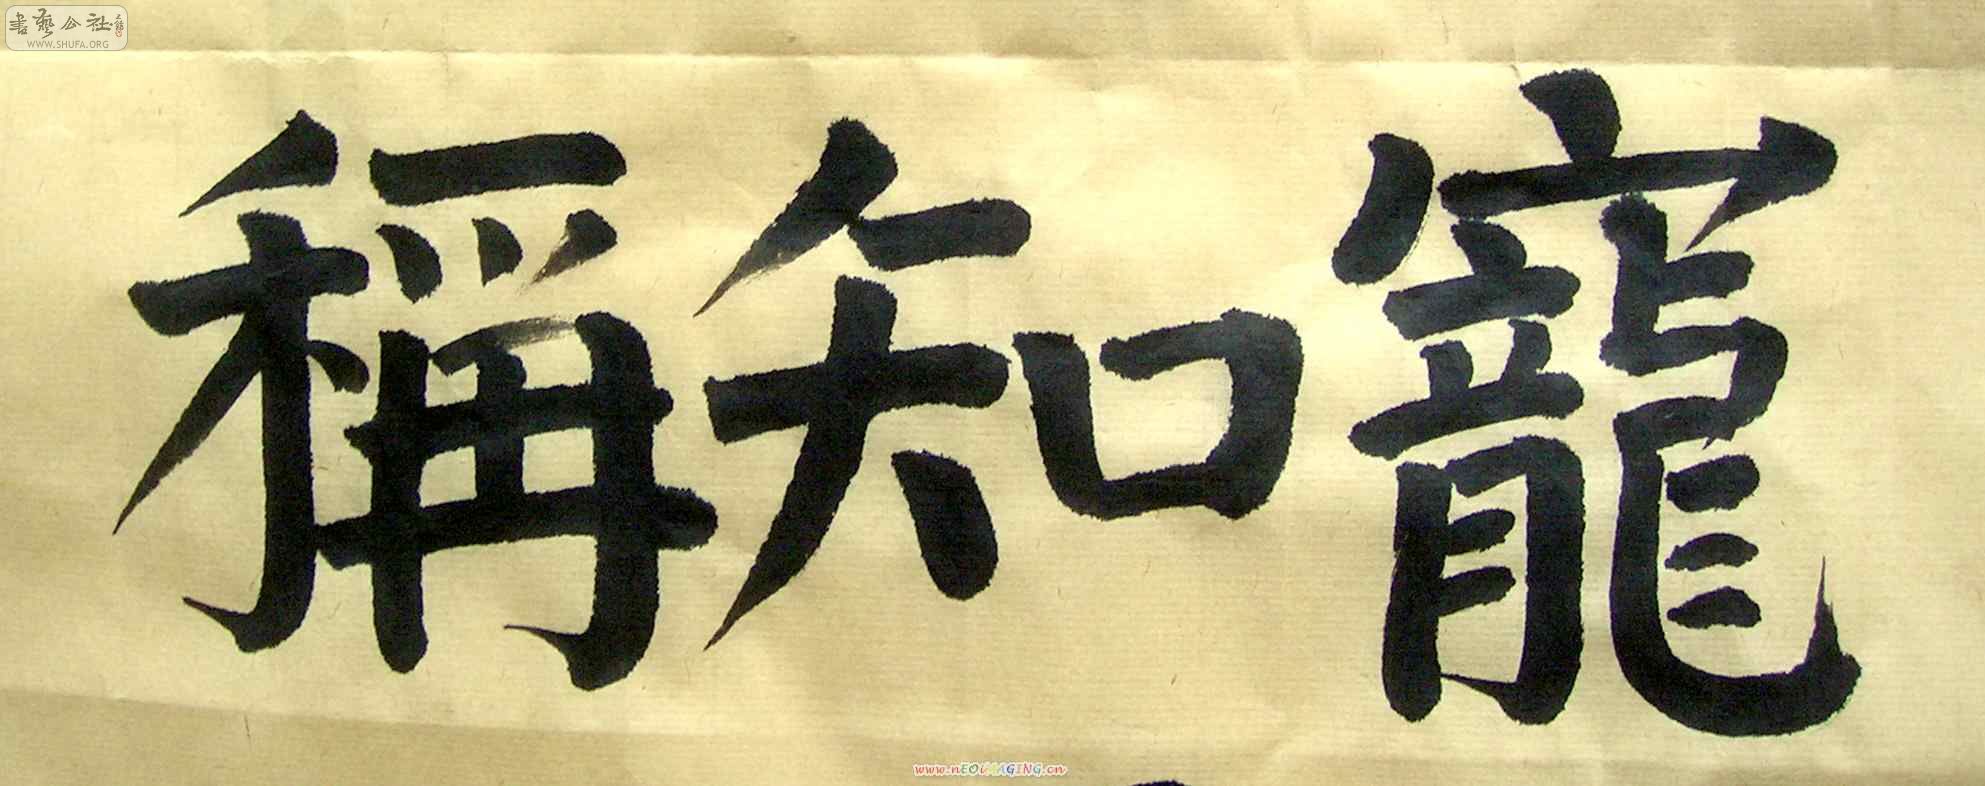 書藝公社
WWW.SHUFA.ORG
寵知稱
www.nEOiMAGING.cn